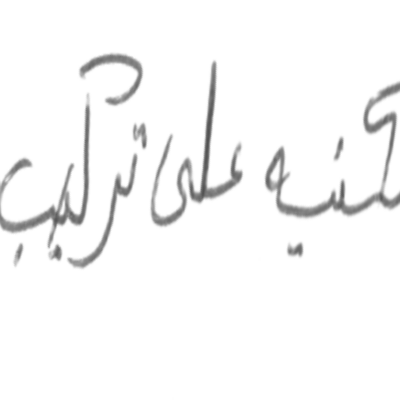 كنيه على تركيب